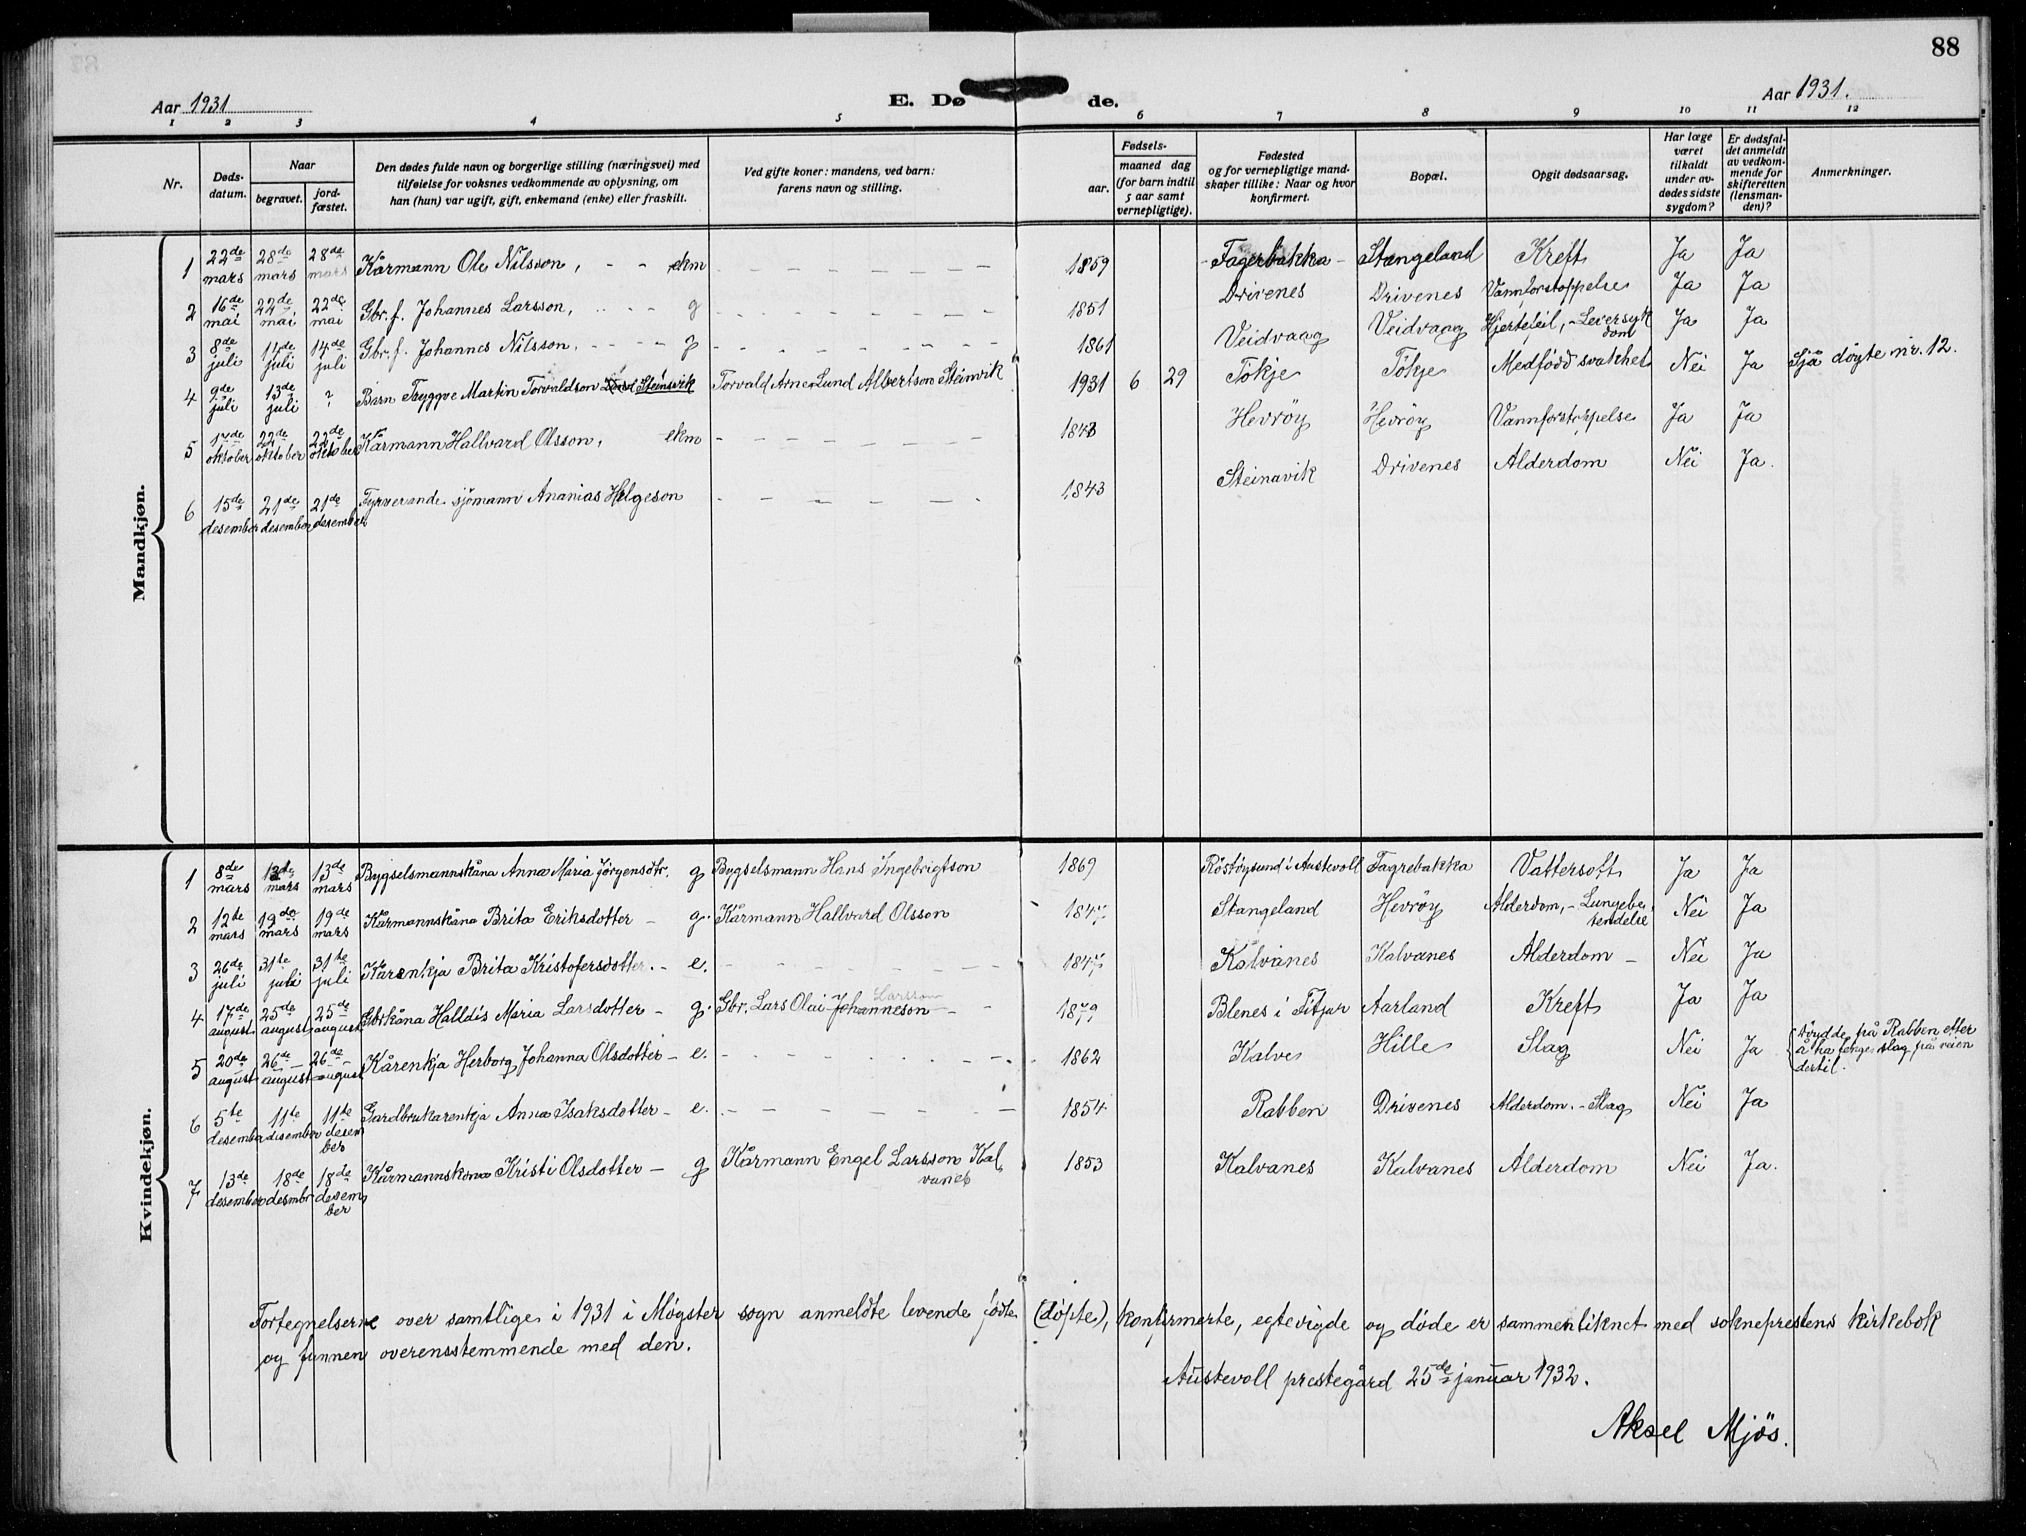 88
Aar 1931
E. Dø de.
Aar 1931.
1 2 3 4 5 6 7 8 9 10 11 12
Nr.
Døds-
datum.
Naar
begravet.
jord-
fæstet.
Den dødes fulde navn og borgerlige stilling (næringsvei) med
tilføielse for voksnes vedkommende av oplysning, om
han (hun) var ugift, gift, enkemand (enke) eller fraskilt.
Ved gifte koner: mandens, ved barn:
farens navn og stilling.
Fødsels-
aar.
maaned dag
(for barn indtil
5 aar samt
vernepligtige).
Fødested
og for vernepligtige mand-
skaper tillike: Naar og hvor
konfirmert.
Bopæl.
Opgit dødsaarsag.
Har læge
været
tilkaldt
under av-
dødes sidste
sygdom?
Er dødsfal-
det anmeldt
av vedkom-
mende for
skifteretten
(lensman-
den)?
Anmerkninger.
Mandkjøn.
1 22de mars 28de mars 28de mars Kårmann Ole Nilsson, - - ekm 1859 Fagerbakka Stangeland Kreft Ja Ja
2 16de mai 22de mai 22de mai Gbr.f. Johannes Larsson, g 1851 Drivenes Drivenes Vannforstoppelse Ja Ja
3 8de juli 14de juli 14de juli Gbr.f. Johannes Nilsson, - - - g 1861 Veidvaag Veidvaag Hjertefeil, - Leversyk
dom Ja Ja
4 9de juli 13de juli ? Barn Tryggve Martin Torvaldson Lund Steinsvik Torvald Arne Lund Albertson Steinvik 1931 6 29 Tökje Tökje Medfödd svakhet Nei Ja Sjå döypte nr. 12.
5 17de oktober 22de oktober 22de oktober Kårmann Hallvard Olsson, ekm 1843 Hevröy Hevröy Vannforstoppelse Ja Ja
6 15de desember 21de desember 21de desember Fyrverande sjömann Ananias Helgeson 1843 Steinavik Drivenes Alderdom Nei Ja.
Kvindekjøn.
1 8de mars 13de mars 13de mars Bygselsmannskåna Anna Maria Jörgensdtr. g Bygselsmann Hans Ingebrigtson 1869 Röstöysund i Austevoll Fagrebakka Vattersott Ja Ja
2 12te mars 19de mars 19de mars Kårmannskåna Brita Eriksdotter - g. Kårmann Hallvard Olsson 1847 Stangeland Hevröy Alderdom, - Lungebe,
tendelse Nei Ja
3 26de juli 31te juli 31te juli Kårenkja Brita Kristofersdotter. - e. 1847 Kalvanes Kalvanes Alderdom - Nei Ja
4 17de august 25de august 25de august Gbrkåna Halldis Maria Larsdotter - g. Gbr. Lars Olai Johanneson Larsson 1879 Blenes i Fitjar Aarland Kreft Ja Ja
5 20de august 26de august 26de august Kårenkja Herborg Johanna Olsdotter - e. 1862 Kalve Hille Slag Nei Ja på Rabben etter
å ha slag på veien
dertil.
6 5te desember 11te desember 11te desem
ber Gardbrukarenkja Anna Isaksdotter - e. 1854 Rabben Drivenes Alderdom. - Slag Nei Ja
7 13de desember 18de desmbr 18de desem
ber Kårmannskona Kristi Olsdotter - g Kårmann Engel Larsson Kal,
vanes 1853 Kalvanes Kalvanes Alderdom Nei Ja.
Fortegnelserne over samtlige i 1931 i Møgster sogn anmeldte levende fødte (døpte), konfirmerte, egtevigde og døde er sammenliknet med sokneprestens kirkebok
og funnen overensstemmende med den.
Austevoll prestegård 25de januar 1932.
Aksel Mjös.